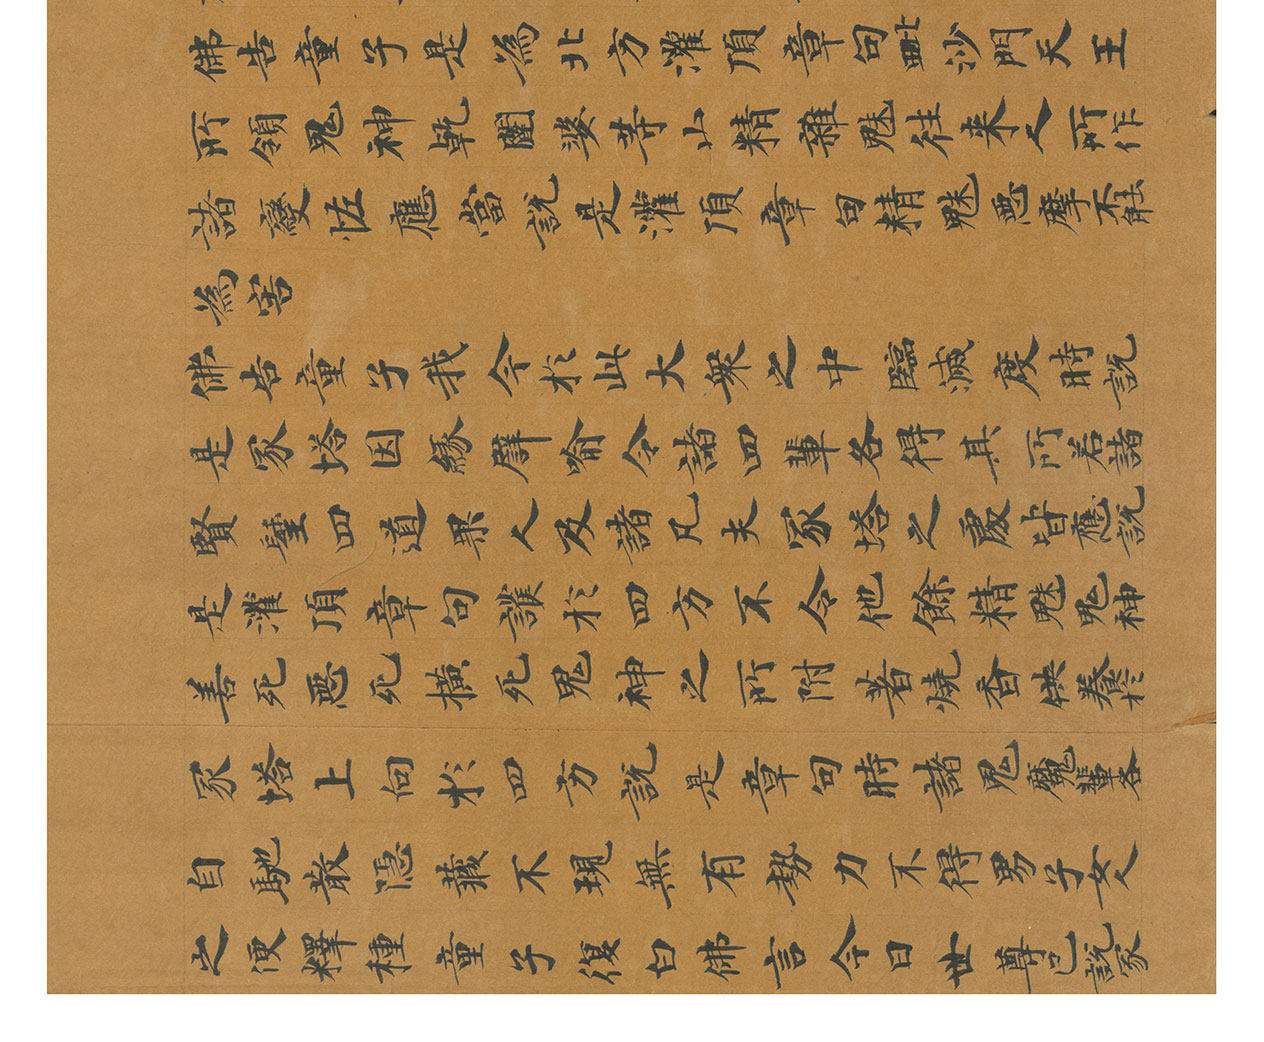 佛告童子是為北方灌頂章句毗沙門天王
所領鬼神乾闥婆等山精雜魅往來人所作
諸變恠應當說是灌頂章句精魅惡摩不能
為害
佛告童子我今於此大衆之中臨滅度時說
是冢塔因緣譬喻令諸四輩各得其所若諸
賢聖四道果人及諸凡夫冢塔之處皆應說
是灌頂章句護於四方不令他餘精魅鬼神
善死惡死橫死鬼神之所附著燒香供養於
冢塔上向於四方說是章句時諸鬼魔輩各
自馳散隱藏不現無有勢力不得男子女人
之便釋種童子復白佛言今日世尊已說冢